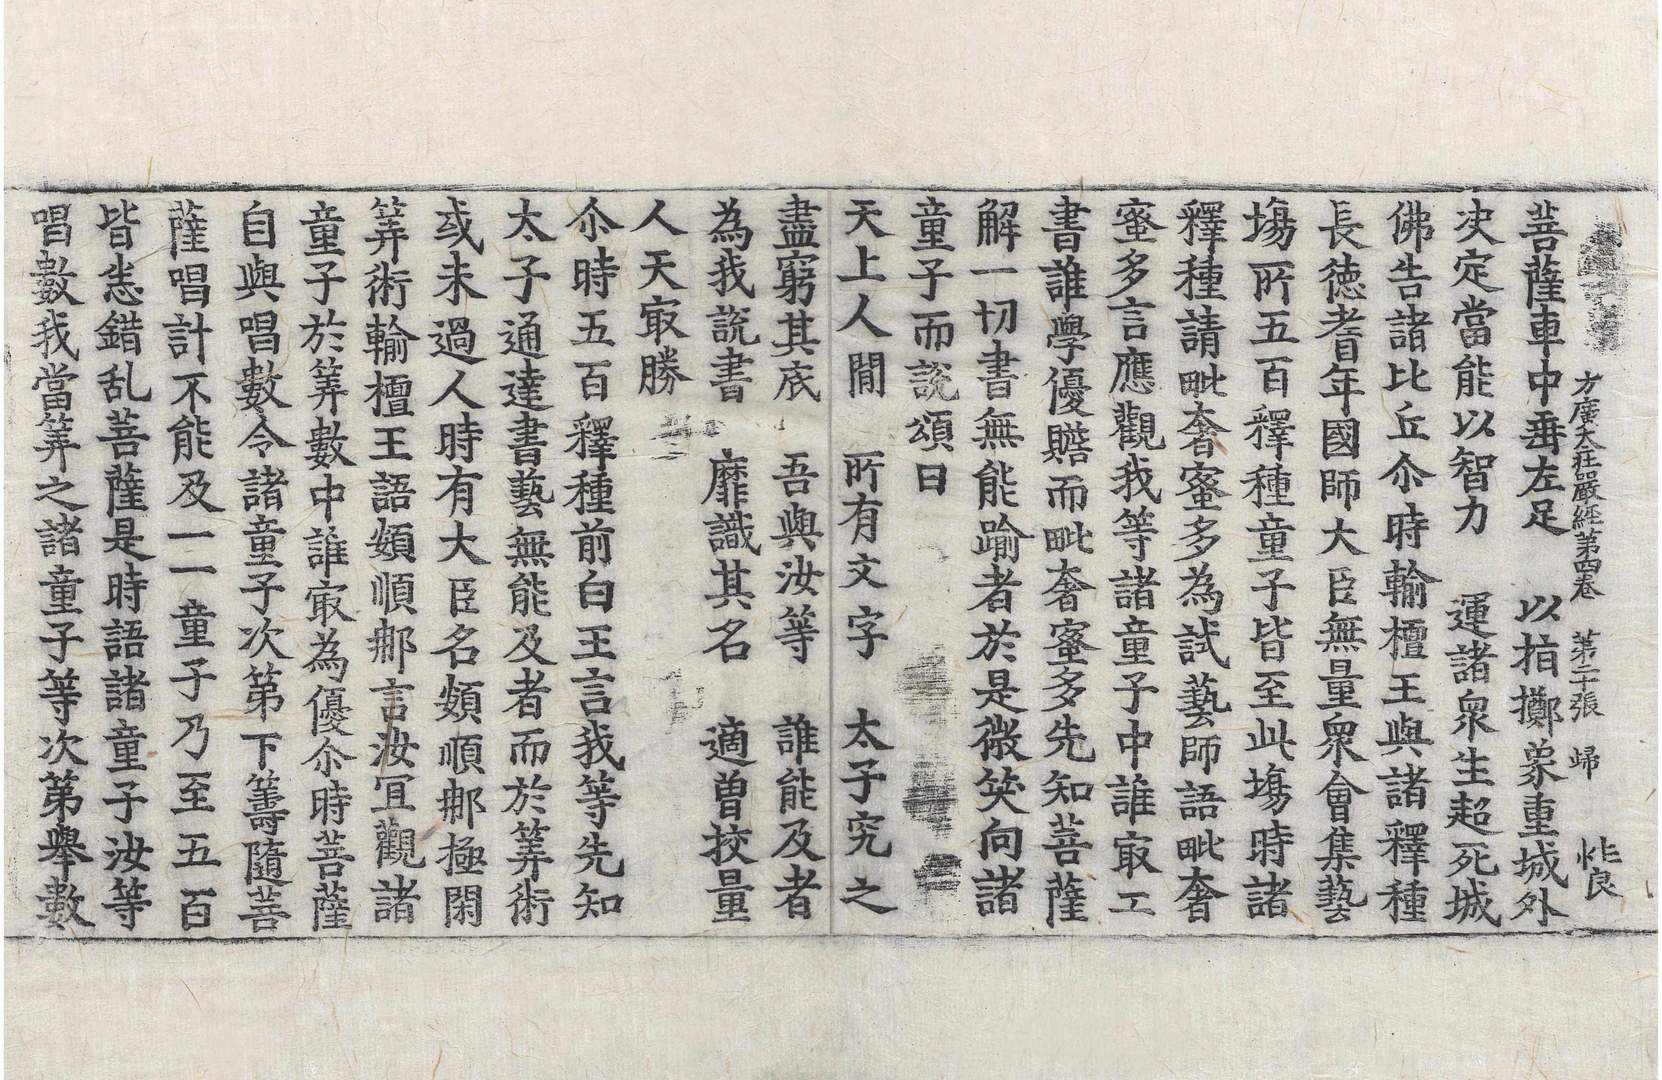 方廣大荘嚴經第四卷 第二十張 歸
菩薩車中垂左足 以指擲象重城外
决定當能以智力 運諸衆生超死城
佛告諸比丘尒時輸檀王與諸釋種
長德耆年國師大臣無量衆會集藝
塲所五百釋種童子皆至此塲時諸
釋種請毗奢蜜多為試藝師語毗奢
蜜多言應觀我等諸童子中誰㝡工
書誰學優贍而毗奢蜜多先知菩薩
解一切書無能踰者於是微笑向諸
童子而說頌曰
天上人間 所有文字 太子究之
盡窮其底 吾與汝等 誰能及者
為我說書 靡識其名 適曽挍量
人天㝡勝
尒時五百釋種前白王言我等先知
太子通達書藝無能及者而於筭術
或未過人時有大臣名頞順郍極閑
筭術輸檀王語頞順郍言汝冝觀諸
童子於筭數中誰㝡為優尒時菩薩
自與唱數令諸童子次第下籌隨菩
薩唱計不能及一一童子乃至五百
皆悉錯乱菩薩是時語諸童子汝等
唱數我當筭之諸童子等次第舉數